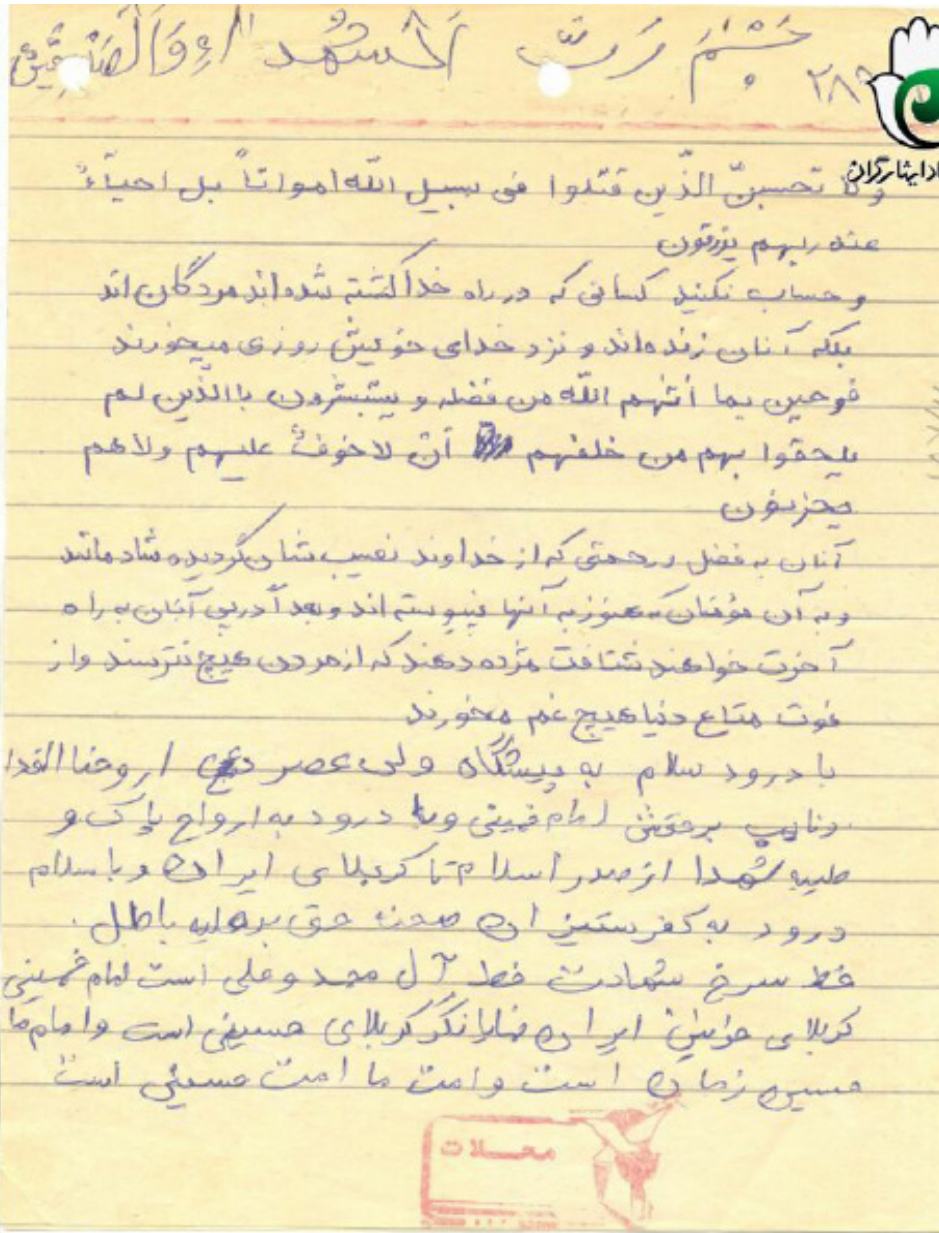 بِسْمِ رَبِّ الشُّهَداءِ وَالصِّدِّیقینَ
۲۸۹
ولا تحسبنّ الّذین قتلوا فی سبیل اللّه امواتاً بل احیآءٌ
عند ربهم یرزقون
و حساب نکنید کسانی که در راه خدا کشته شده‌اند مردگان اند
بلکه آنان زنده‌اند و نزد خدای خویش روزی میخورند
فرحین بما أتهم اللّه من فضله و یستبشرون باالّذین لم
یلحقوا بهم من خلفهم أن لا خوفٌ علیهم ولا هم
یحزنون
آنان به فضل و رحمتی که از خداوند نصیب شان گردیده شادمانند
و به آن مؤمنان که هنوز به آنها نپیوسته اند و بعداً در پی آنان به راه
آخرت خواهند شتافت مژده دهند که از مردن هیچ نترسند و از
فوت متاع دنیا هیچ غم مخورند
با درود سلام به پیشگاه ولی عصر (عج) ارواحنا الفدا
و نایب برحقش امام خمینی و با درود به ارواح پاک و
طیبه شهدا از صدر اسلام تا کربلای ایران و با سلام
درود به کفر ستیزان صحنه حق بر علیه باطل.
خط سرخ شهادت خط آل محمد و علی است امام خمینی
کربلای خونین ایران نمایانگر کربلای حسینی است و امام ما
حسین زمان است و امت ما امت حسینی است
محلات